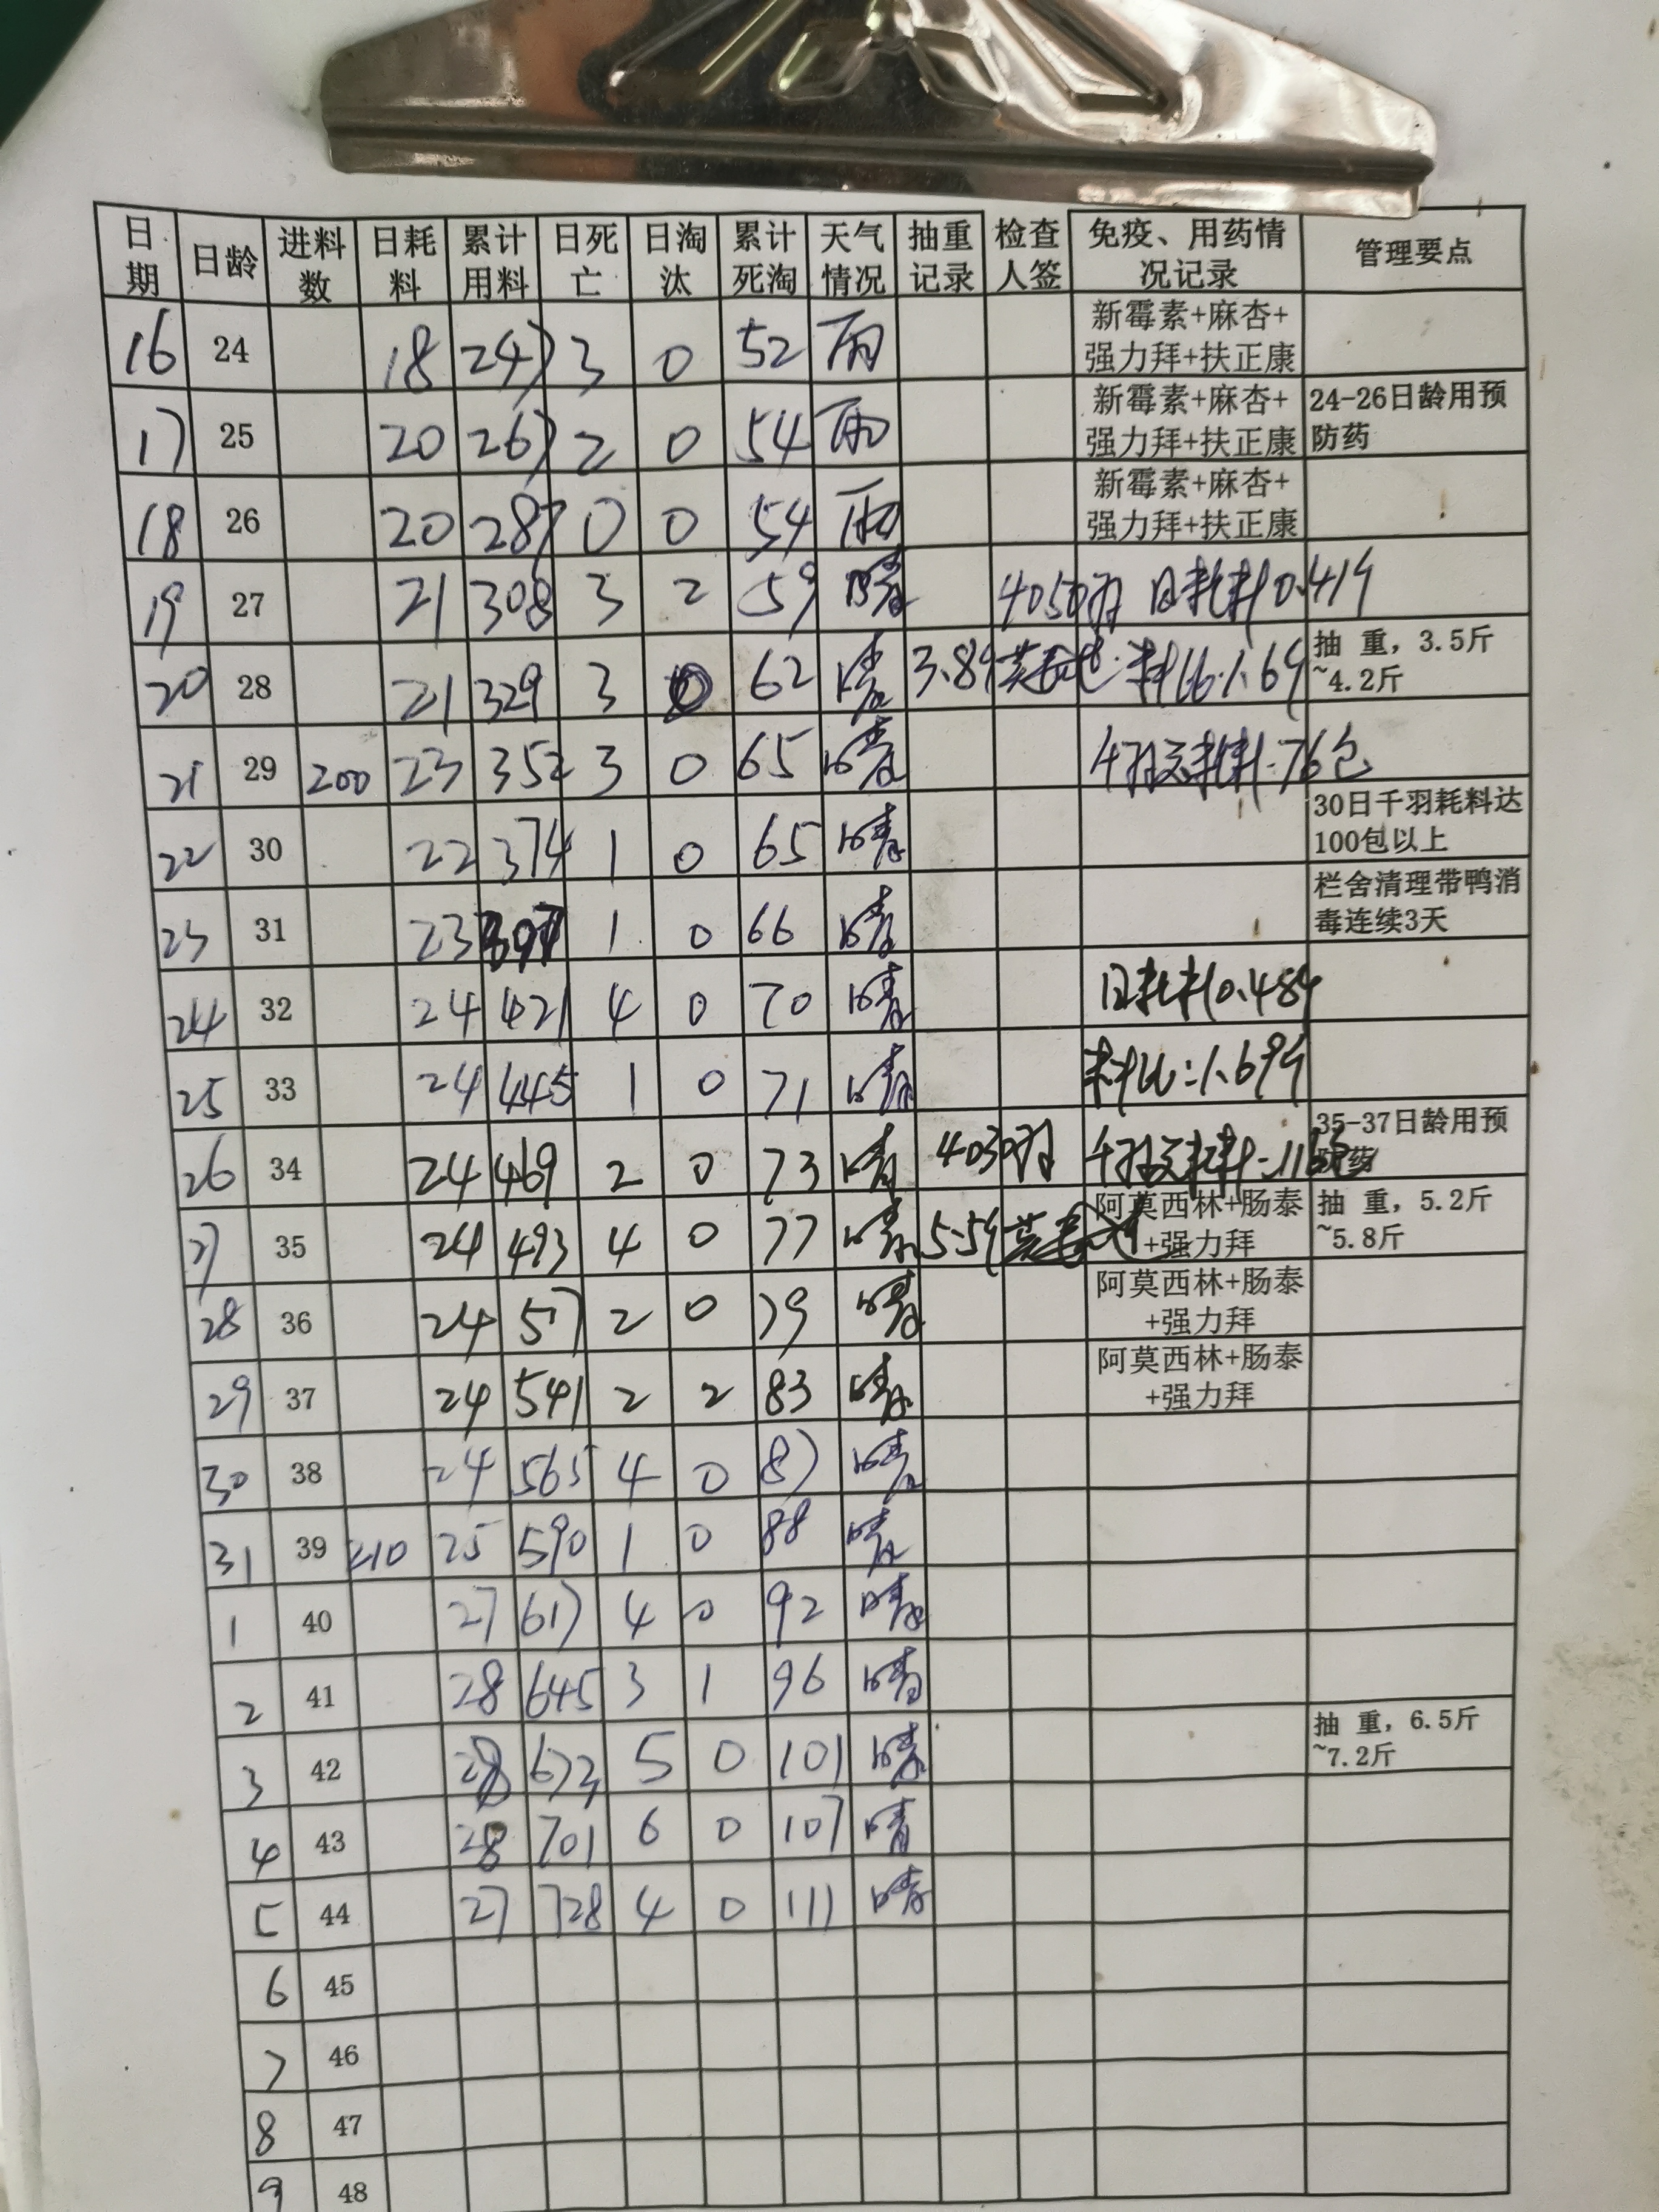 日期 日龄 进料数 日耗料 累计用料 日死亡 日淘汰 累计死淘 天气情况 抽重记录 检查人签 免疫、用药情况记录 管理要点
16 24 18 247 3 0 52 雨 新霉素+麻杏+强力拜+扶正康
17 25 20 267 2 0 54 雨 新霉素+麻杏+强力拜+扶正康 24-26日龄用预防药
18 26 20 287 0 0 54 雨 新霉素+麻杏+强力拜+扶正康
19 27 21 308 3 2 59 晴 4050羽 日耗料0.41斤
20 28 21 329 3 0 62 晴 3.8斤 料比:1.6斤 抽 重，3.5斤~4.2斤
21 29 200 23 352 3 0 65 晴 千羽交耗料:76包
22 30 22 374 1 0 65 晴 30日千羽耗料达100包以上
23 31 23 397 1 0 66 晴 栏舍清理带鸭消毒连续3天
24 32 24 421 4 0 70 晴 日耗料0.48斤
25 33 24 445 1 0 71 晴 料比:1.69斤
26 34 24 469 2 0 73 晴 4030羽 千羽交耗料: 35-37日龄用预防药
27 35 24 493 4 0 77 晴 5.5斤 阿莫西林+肠泰+强力拜 抽 重，5.2斤~5.8斤
28 36 24 517 2 0 79 晴 阿莫西林+肠泰+强力拜
29 37 24 541 2 2 83 晴 阿莫西林+肠泰+强力拜
30 38 24 565 4 0 87 晴
31 39 210 25 590 1 0 88 晴
1 40 27 617 4 0 92 晴
2 41 28 645 3 1 96 晴
3 42 28 673 5 0 101 晴 抽 重，6.5斤~7.2斤
4 43 28 701 6 0 107 晴
5 44 27 728 4 0 111 晴
6 45
7 46
8 47
9 48